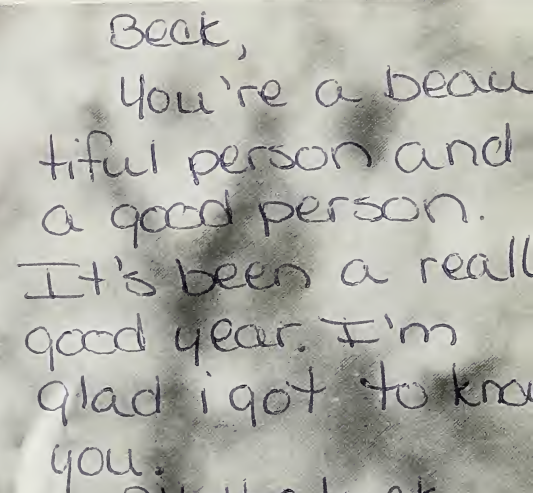 Beck,
You're a beau
tiful person and
a good person.
It's been a reall
good year. I'm
glad i got to know
you.